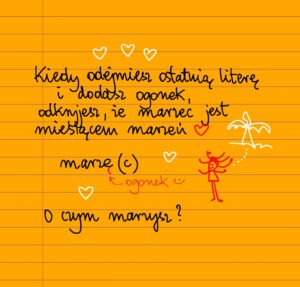 Kiedy odejmiesz ostatnią literę
i dodasz ogonek,
odkryjesz, że marzec jest
miesiącem marzeń
marzę (c)
ogonek
O czym marzysz?